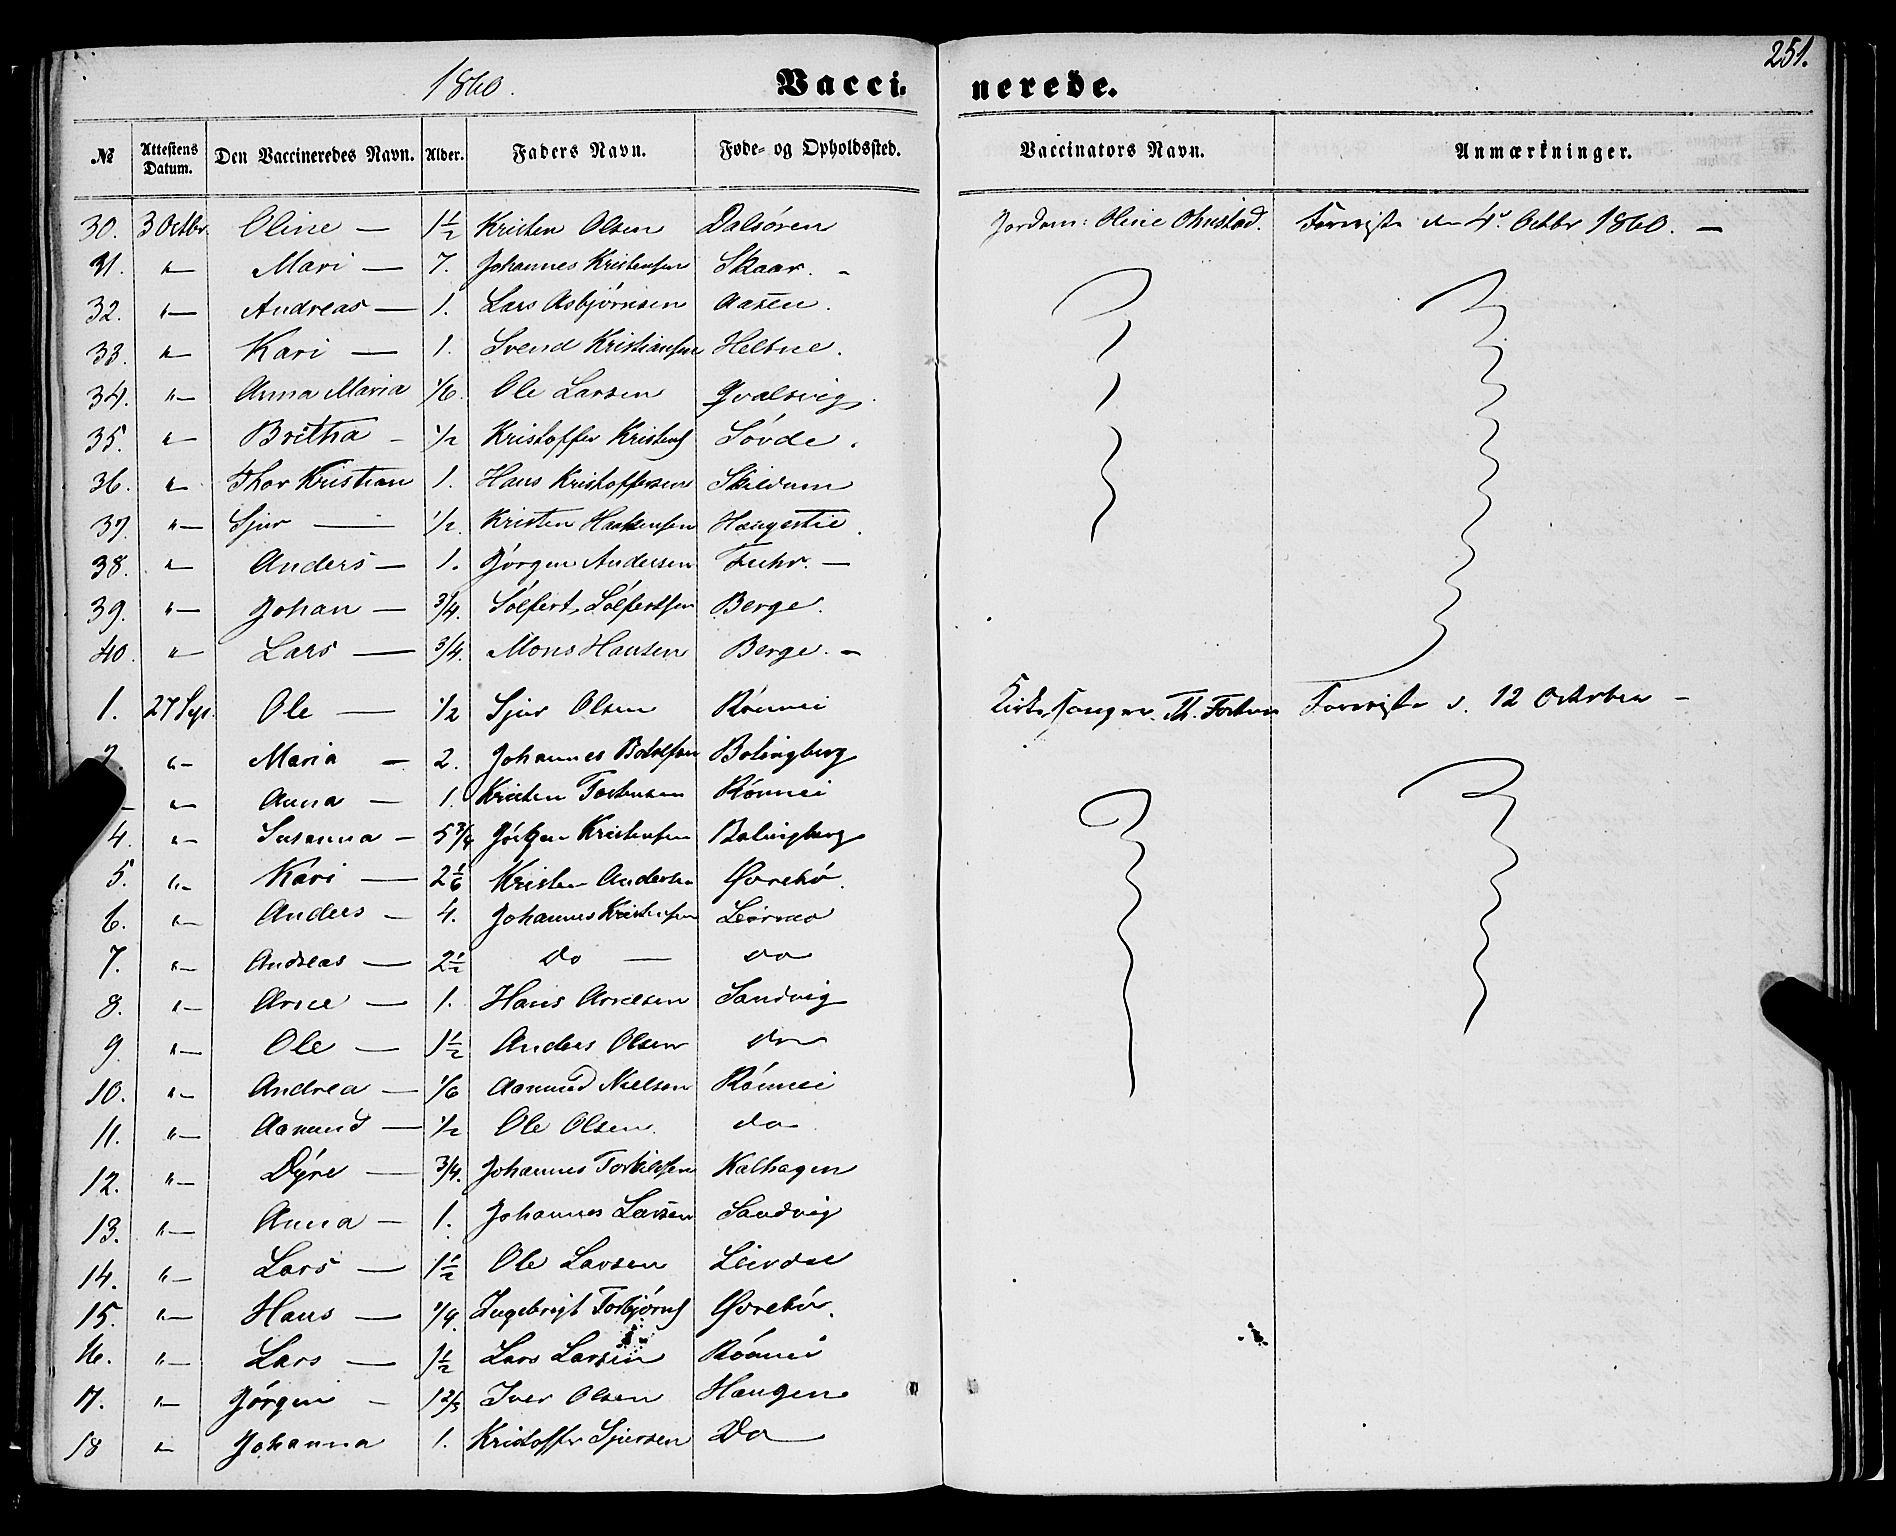 251.
1860. Vacci- nerede.
№ Attestens Datum. Den Vaccineredes Navn. Alder. Faders Navn. Føde- og Opholdssted. Vaccinators Navn. Anmærkninger.
30. 3 Octbr. Oline — 1½ Kristen Olsen Dalsøren Jordem: Oline Ohnstad. Foreviste den 4de Octbr 1860. —
31. "— Mari — 7. Johannes Kristensen Skaar. -
32. "— Andreas — 1. Lars Asbjørnsen Aasen.
33. "— Kari — 1. Svend Kristiansen Heltne.
34. "— Anna Maria 1/6. Ole Larsen Qvalsvig.
35. "— Britha - 1/2 Kristoffer Kristens Søvde.
36. "— Thor Kristian 1. Hans Kristoffersen Skildum
37. "— Sjur — 1/2. Kristen Haakensen Haugestie.
38. "— Anders — 1. Jørgen Andersen Fuhr. —
39. "— Johan — 3/4. Solfert Solfertsen Berge.
40. "— Lars — 3/4. Mons Hansen Berge. -
1. 27 Sep. Ole — 1/2 Sjur Olsen Rønnei Kirkesanger Th. Foreviste d. 12 October -
2. "— Maria - 2. Johannes Botolfsen Bolingberg
"— Anna — 1. Kristen Torstensen Rønnei
4. "— Susanna - 5 3/4 Kristensen Bolingberg
5. "— Kari — 2 1/6 Kristen Andersen Øvrebø.
6. "— Anders - 4. Johannes Kristensen Leirmo
7. "— Andreas — 2½ do — do
8. "— Arne — 1. Hans Arnesen Sandvig
9. "— Ole — 1½ Anders Olsen do
10. "— Andrea — 1/6 Aamund Nielsen Rønnei
11. "— Aamund — 1/2 Ole Olsen. do
12. "— Dyre — 3/4. Johannes Torkildsen Kalhagen
13. "— Anna - 1. Johannes Larsen Sandvig
14. "— Lars — 1½ Ole Larsen Leirdal
15. "— Hans — 1/4. Ingebrigt Torbjørns Øvrebø.
16. "— Lars — 1½ Lars Larsen Rønnei
17. "— Jørgen - 1 2/3 Iver Olsen Haugen
18 "— Johanna 1. Kristoffer Sjursen Do